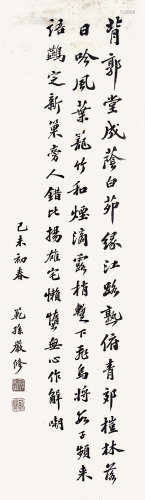 背郭堂成蔭白茆緣江路熟俯青郊榿林
日吟風葉籠竹和煙滴露梢暫下飛烏將數子頻來
語鷰定新巢旁人錯比揚雄宅懶惰無心作解嘲
己未初春
範孫嚴修